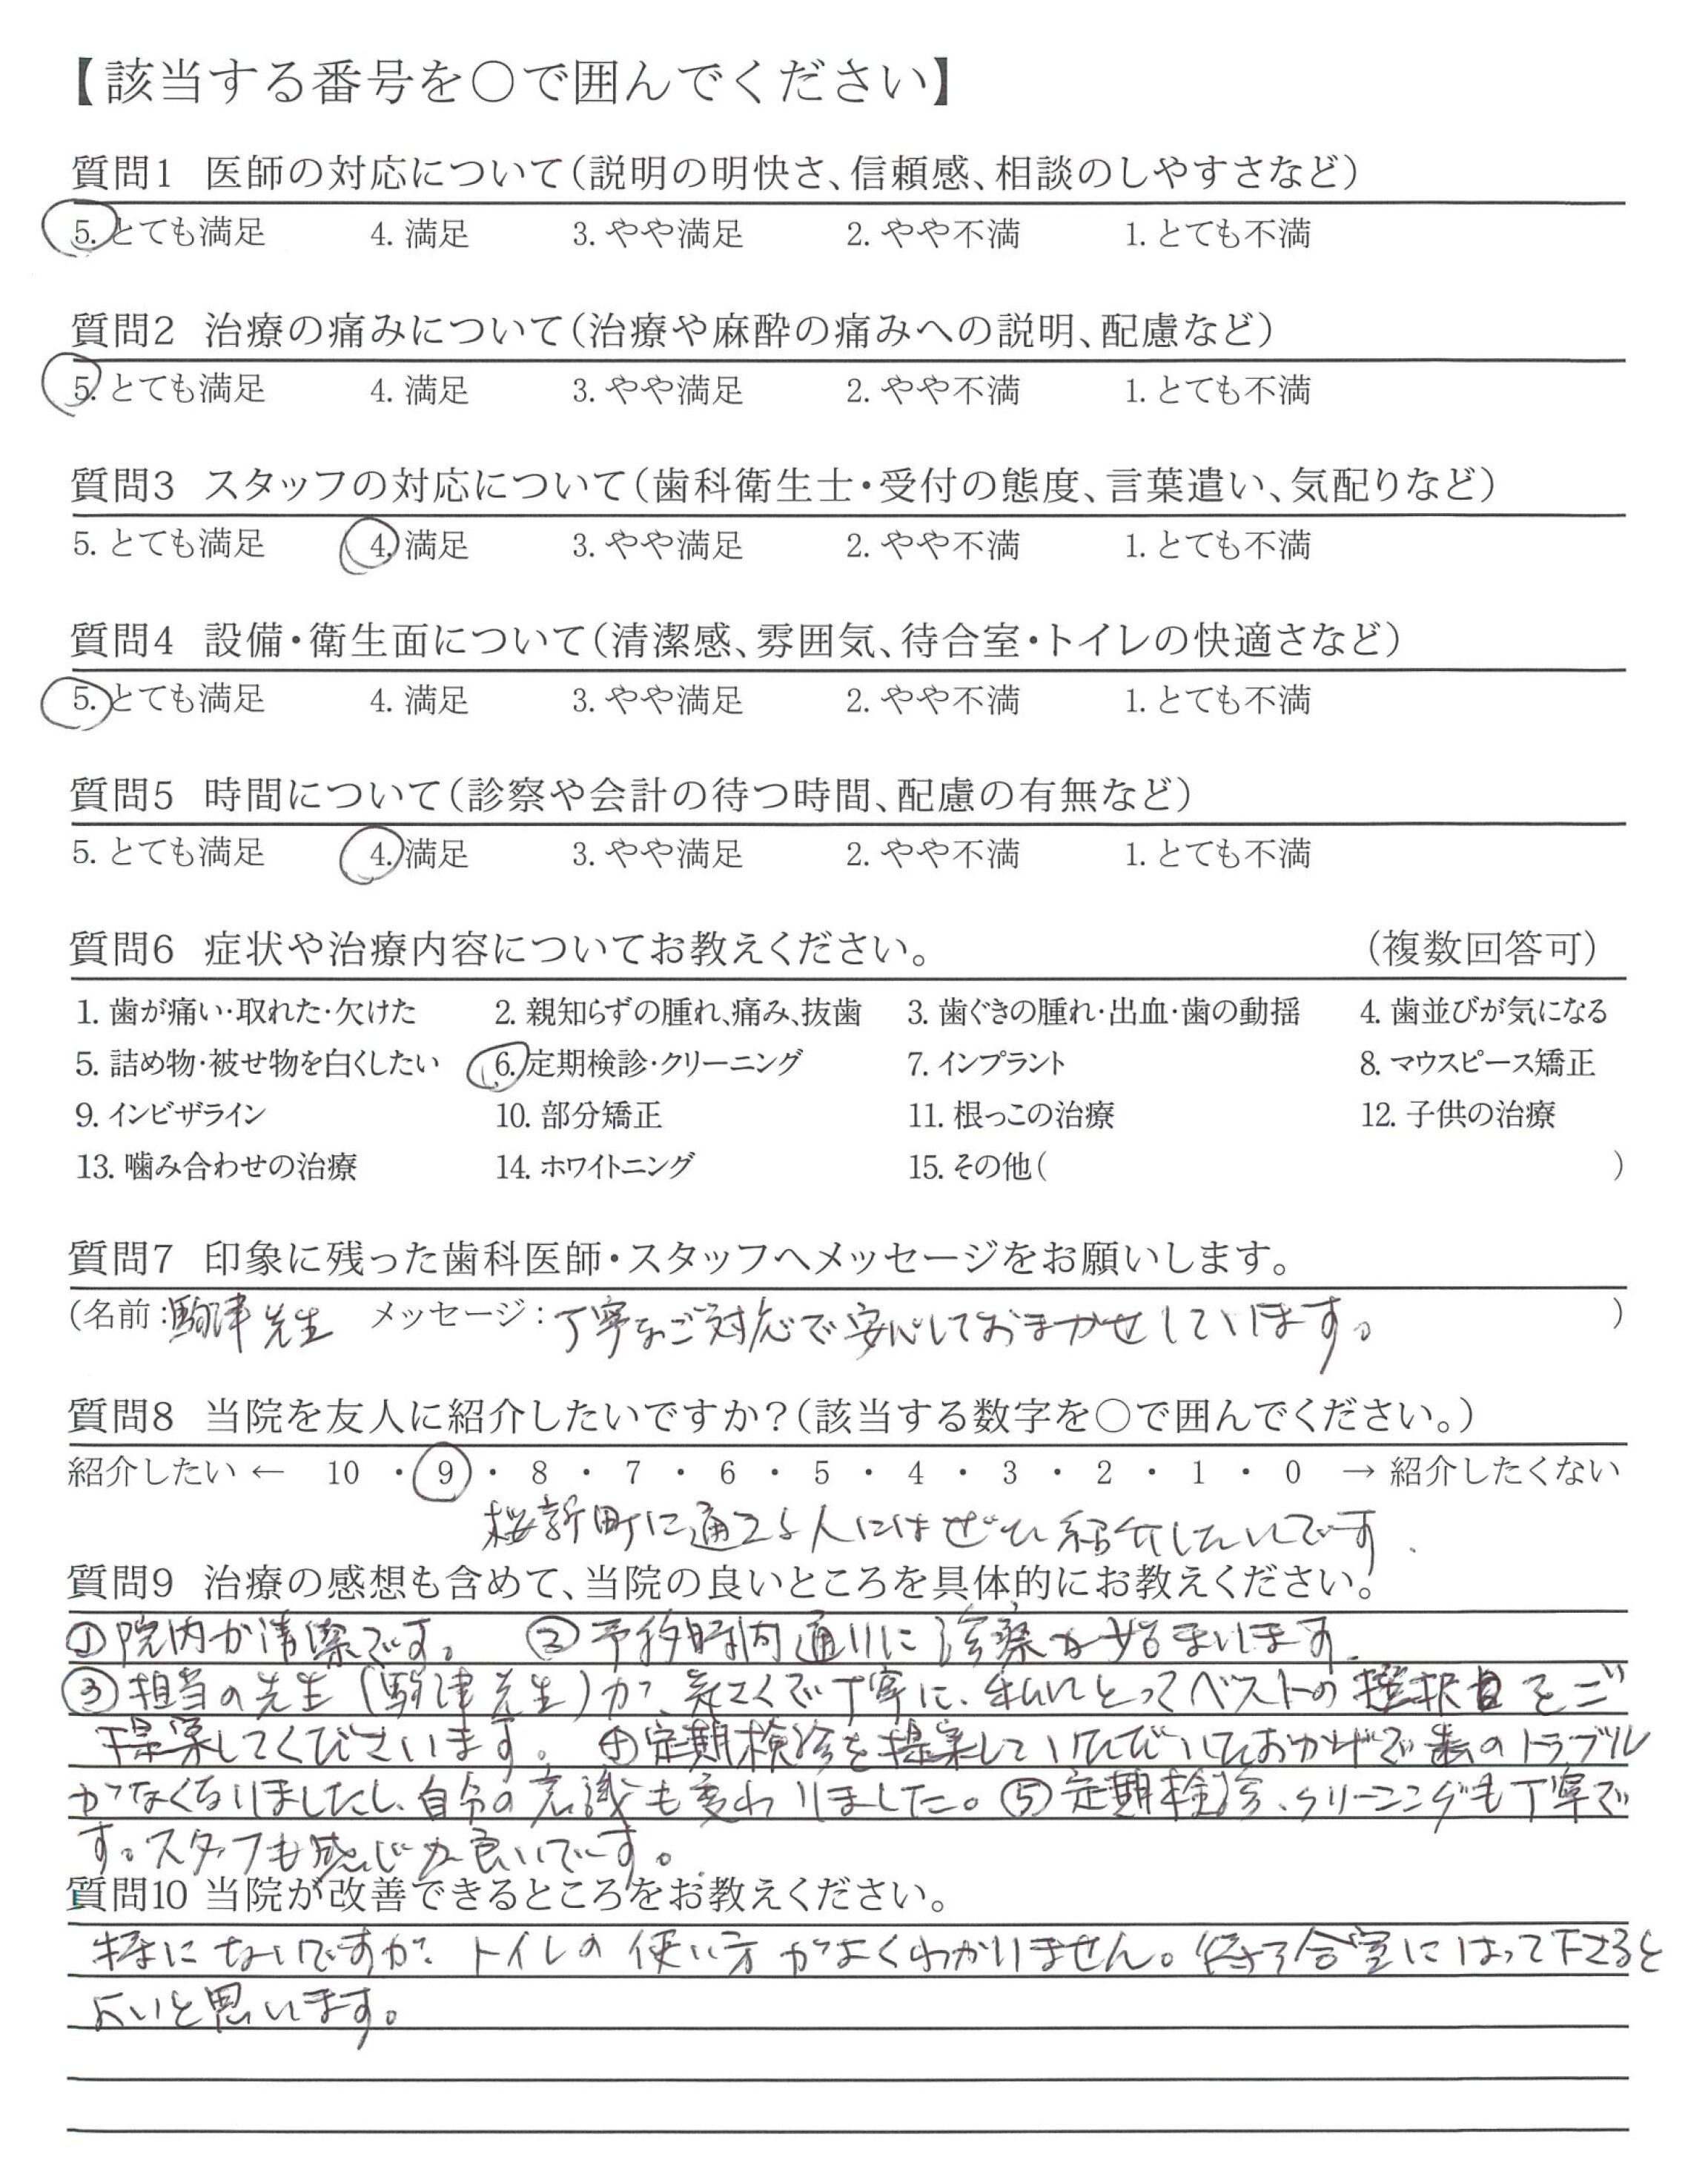 【該当する番号を○で囲んでください】
質問1 医師の対応について(説明の明快さ、信頼感、相談のしやすさなど)
5. とても満足 4. 満足 3. やや満足 2. やや不満 1. とても不満
質問2 治療の痛みについて(治療や麻酔の痛みへの説明、配慮など)
5. とても満足 4. 満足 3. やや満足 2. やや不満 1. とても不満
質問3 スタッフの対応について(歯科衛生士・受付の態度、言葉遣い、気配りなど)
5. とても満足 4. 満足 3. やや満足 2. やや不満 1. とても不満
質問4 設備・衛生面について(清潔感、雰囲気、待合室・トイレの快適さなど)
5. とても満足 4. 満足 3. やや満足 2. やや不満 1. とても不満
質問5 時間について(診察や会計の待つ時間、配慮の有無など)
5. とても満足 4. 満足 3. やや満足 2. やや不満 1. とても不満
質問6 症状や治療内容についてお教えください。 (複数回答可)
1. 歯が痛い・取れた・欠けた 2. 親知らずの腫れ、痛み、抜歯 3. 歯ぐきの腫れ・出血・歯の動揺 4. 歯並びが気になる
5. 詰め物・被せ物を白くしたい 6. 定期検診・クリーニング 7. インプラント 8. マウスピース矯正
9. インビザライン 10. 部分矯正 11. 根っこの治療 12. 子供の治療
13. 噛み合わせの治療 14. ホワイトニング 15. その他( )
質問7 印象に残った歯科医師・スタッフへメッセージをお願いします。
(名前:駒津先生 メッセージ:丁寧なご対応で安心しておまかせしています。 )
質問8 当院を友人に紹介したいですか?(該当する数字を○で囲んでください。)
紹介したい ← 10 ・ 9 ・ 8 ・ 7 ・ 6 ・ 5 ・ 4 ・ 3 ・ 2 ・ 1 ・ 0 → 紹介したくない
桜新町に通える人にはぜひ紹介したいです.
質問9 治療の感想も含めて、当院の良いところを具体的にお教えください。
①院内が清潔です。 ②予約時間通りに診察が始まります.
③担当の先生(駒津先生)が、気さくで丁寧に、私にとってベストの選択肢をご
提案してくださいます。 ④定期検診を提案していただいたおかげで歯のトラブル
がなくなりましたし、自分の意識も変わりました。⑤定期検診、クリーニングも丁寧で
す。スタッフも感じが良いです。
質問10 当院が改善できるところをお教えください。
特にないですが、トイレの使い方がよくわかりません。待合室にはって下さると
よいと思います。